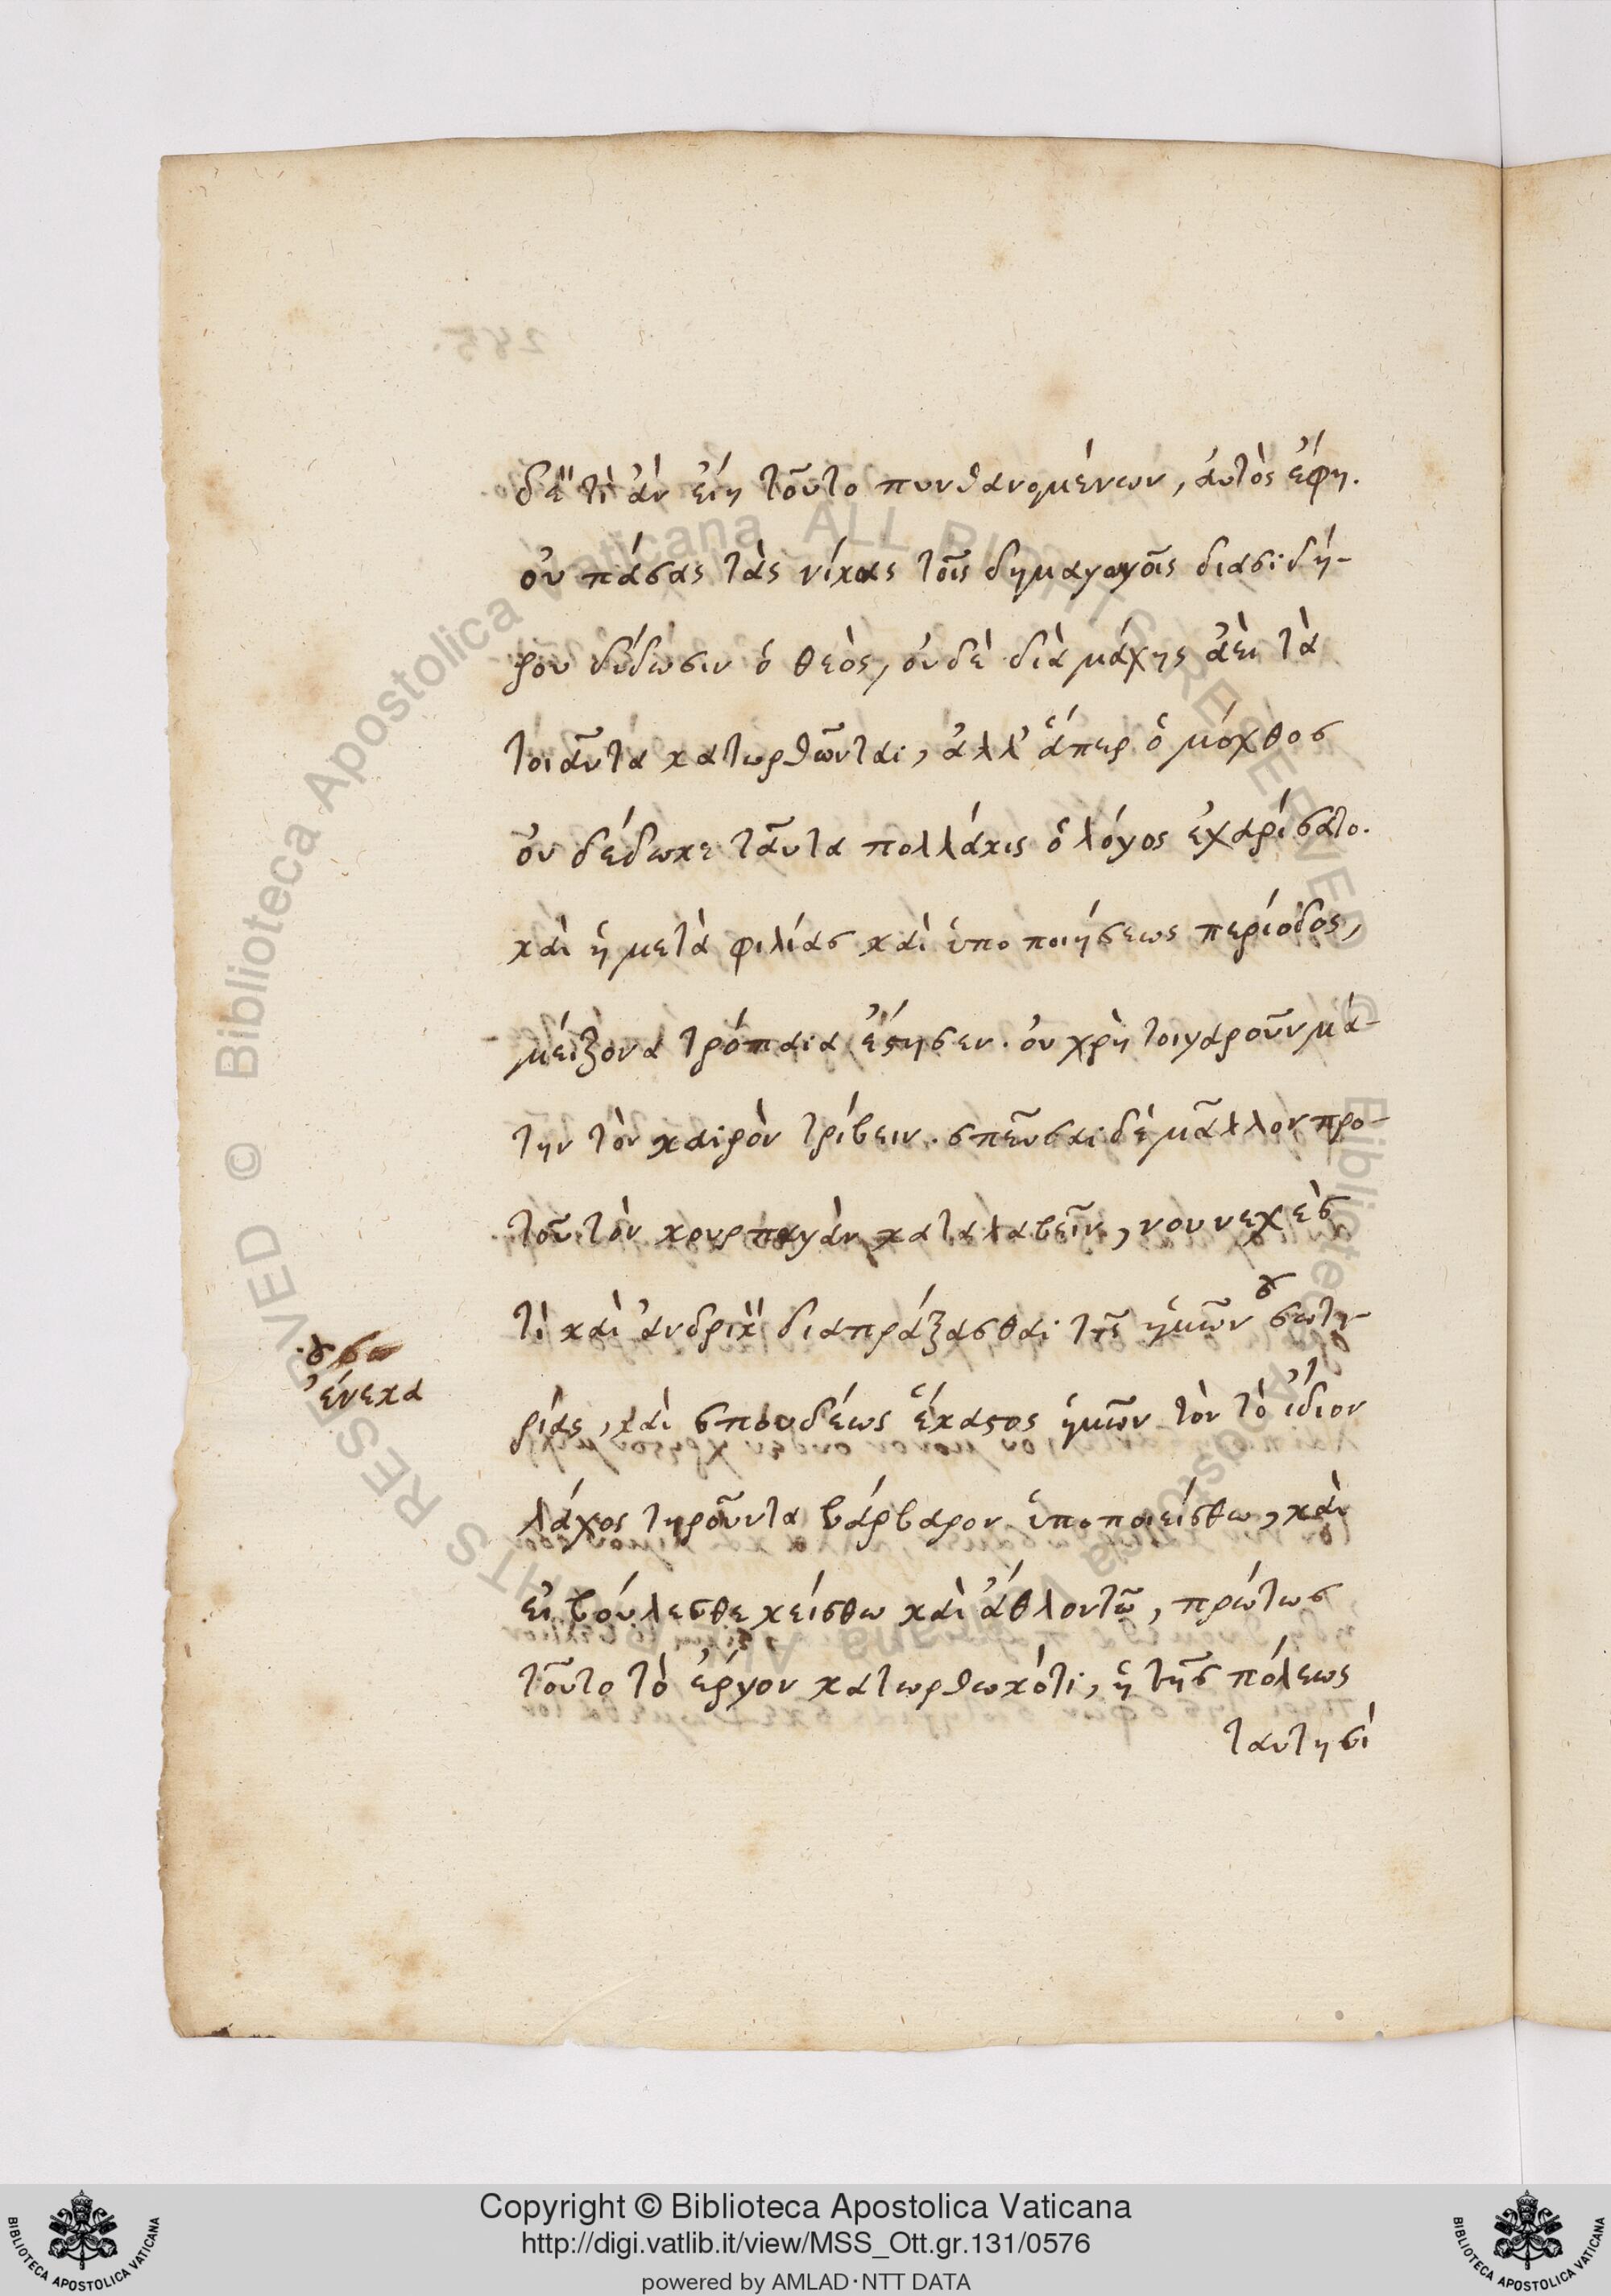 δὲ τὶ ἂν εἴη τοῦτο πυνθανομένων, ἀυτὸς ἔφη.
οὐ πάσας τὰς νίκας τοῖς δημαγωγοῖς διασιδή-
ρου δίδωσιν ὁ θεὸς, οὐδὲ διὰ μάχης ἀεὶ τὰ
τοιαῦτα κατωρθῶνται, ἀλλ' ἅπερ ὁ μόχθος
οὐ δέδωκε ταῦτα πολλάκις ὁ λόγος ἐχαρίσατο.
καὶ ἡ μετὰ φιλίας καὶ ὑποποιήσεως περίοδος,
μείζονα τρόπαια ἔστησεν. οὐ χρὴ τοιγαροῦν μά-
την τὸν καιρὸν τρίβειν. σπεῦσαι δὲ μᾶλλον προ-
τοῦ τὸν κουρπαγὰν καταλαβεῖν, νουνεχὲς
τὶ καὶ ἀνδρικὸν διαπράξασθαι τῆς ἡμῶν σωτη-
ἕνεκα
ρίας, καὶ σπουδέως ἕκαστος ἡμῶν τὸν τὸ ἴδιον
λάχος τηροῦντα βάρβαρον ὑποποιείσθω, καὶ
εἰ βούλεσθε κείσθω καὶ ἄθλον τῶ, πρώτως
τοῦτο τὸ ἔργον κατωρθωκότι, ἡ τῆς πόλεως
ταυτησὶ
285.
Copyright © Biblioteca Apostolica Vaticana
http://digi.vatlib.it/view/MSS_Ott.gr.131/0576
powered by AMLAD·NTT DATA
BIBLIOTECA APOSTOLICA VATICANA
BIBLIOTECA APOSTOLICA VATICANA
© Biblioteca Apostolica Vaticana ALL RIGHTS RESERVED
© Biblioteca Apostolica Vaticana ALL RIGHTS RESERVED